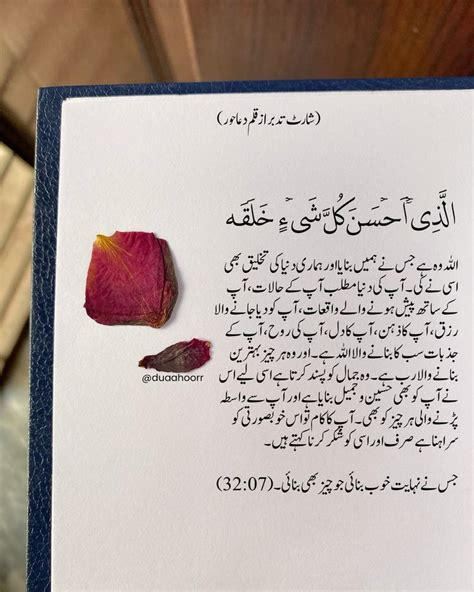 (شارٹ تدبر از قلم دعا حور)
الَّذِي أَحْسَنَ كُلَّ شَيْءٍ خَلَقَهُ
اللہ وہ ہے جس نے ہمیں بنایا اور ہماری دنیا کی تخلیق بھی
اسی نے کی۔ آپ کی دنیا مطلب آپ کے حالات، آپ
کے ساتھ پیش ہونے والے واقعات، آپ کو دیا جانے والا
رزق، آپ کا ذہن، آپ کا دل، آپ کی روح، آپ کے
جذبات سب کا بنانے والا اللہ ہے۔ اور وہ ہر چیز بہترین
بنانے والا رب ہے۔ وہ جمال کو پسند کرتا ہے اسی لیے اس
نے آپ کو بھی حسین و جمیل بنایا ہے اور آپ سے واسطہ
پڑنے والی ہر چیز کو بھی۔ آپ کا کام تو اس خوبصورتی کو
سراہنا ہے صرف اور اسی کو شکر کرنا کہتے ہیں۔
@duaahoorr
جس نے نہایت خوب بنائی جو چیز بھی بنائی۔ (32:07)